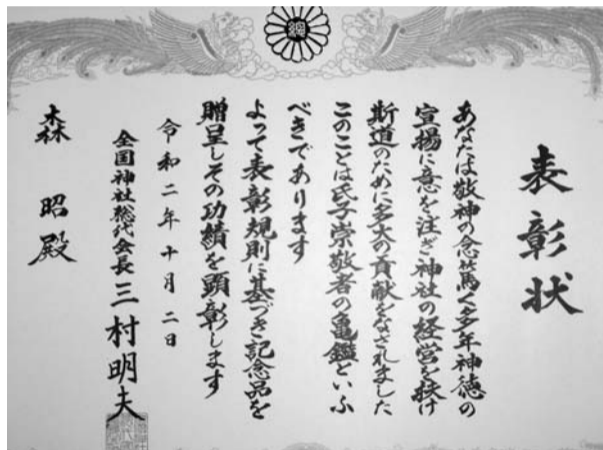 表彰状
あなたは敬神の念篤く多年神徳の
宣揚に意を注ぎ神社の経営を扶け
斯道のために多大の貢献をなされました
このことは氏子崇敬者の亀鑑といふ
べきであります
よって表彰規則に基づき記念品を
贈呈しその功績を顕彰します
令和二年十月二日
全国神社総代会長 三村明夫
森 昭 殿